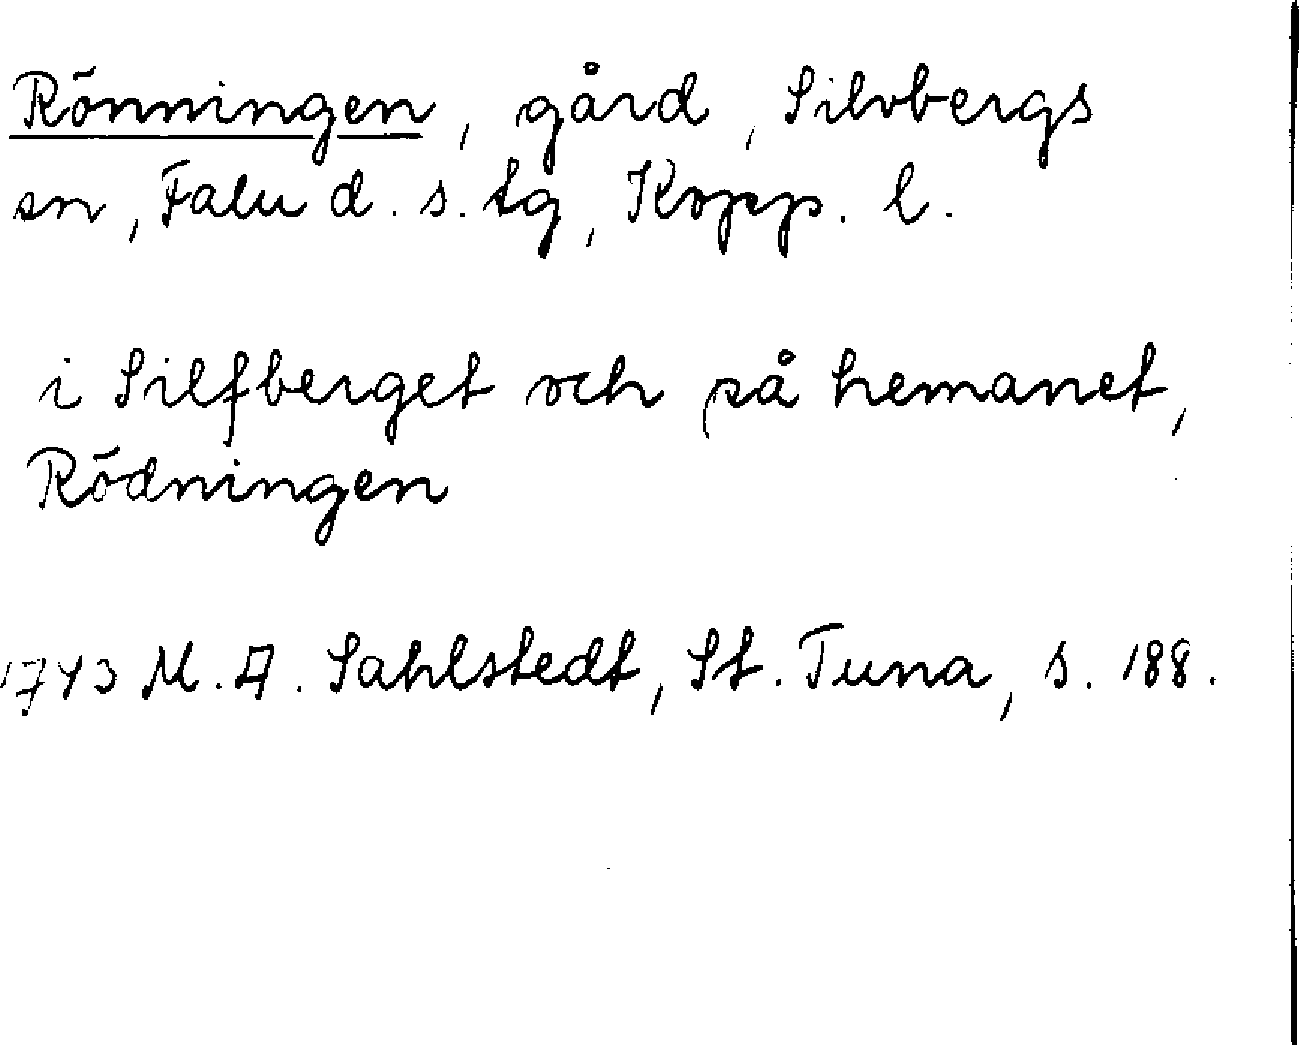 Rönningen, gård, Silvbergs
sn, Falu d. s. tg, Kopp. l.
i Silfberget och på hemanet,
Rödningen
1743 M. A. Sahlstedt, St. Tuna, s. 188.